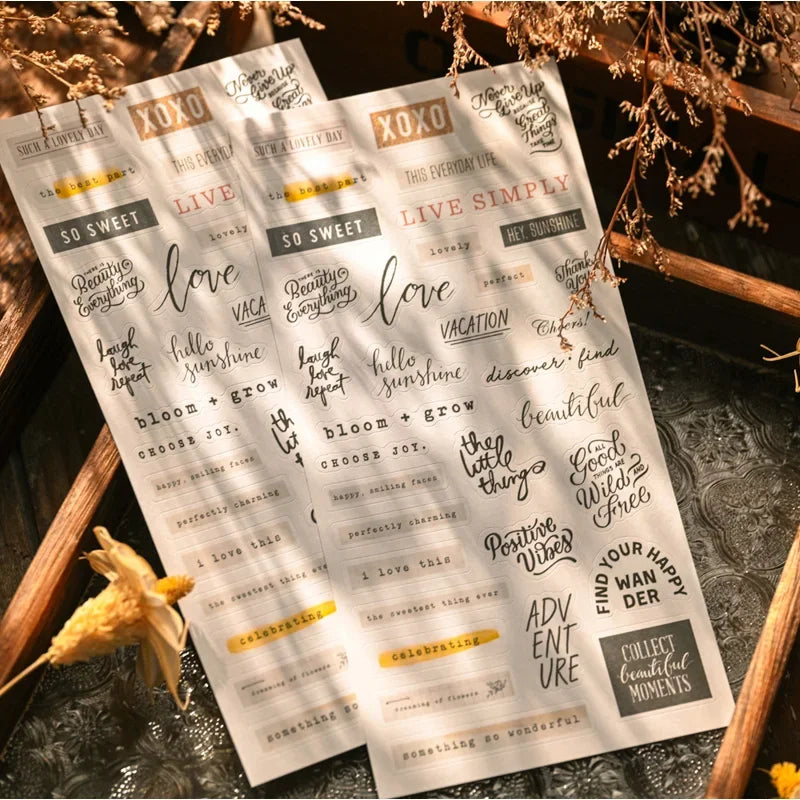 SUCH A LOVELY DAY
XOXO
Never
Give Up
the best part
THIS EVERYDA
LIVE
SO SWEET
lovely
THERE IS
Beauty
in
Everything
love
VACA
laugh
love
repeat
hello
sunshine
bloom + grow
CHOOSE JOY.
the
happy, smiling faces
perfectly charming
i love this
the sweetest thing eve
celebrating
dreaming of flowers
something so
SUCH A LOVELY DAY
XOXO
Never
Give Up
BECAUSE
Great
Things
TAKE TIME
the best part
THIS EVERYDAY LIFE
LIVE SIMPLY
SO SWEET
HEY, SUNSHINE
lovely
THERE IS
Beauty
in
Everything
love
perfect
Thank
You
VACATION
Cheers!
laugh
love
repeat
hello
sunshine
discover + find
bloom + grow
beautiful
CHOOSE JOY.
the
little
things
ALL
Good
THINGS ARE
Wild AND
Free
happy, smiling faces
perfectly charming
Positive
Vibes
i love this
FIND YOUR HAPPY
WAN
DER
the sweetest thing ever
ADV
ENT
URE
celebrating
COLLECT
beautiful
MOMENTS
dreaming of flowers
something so wonderful